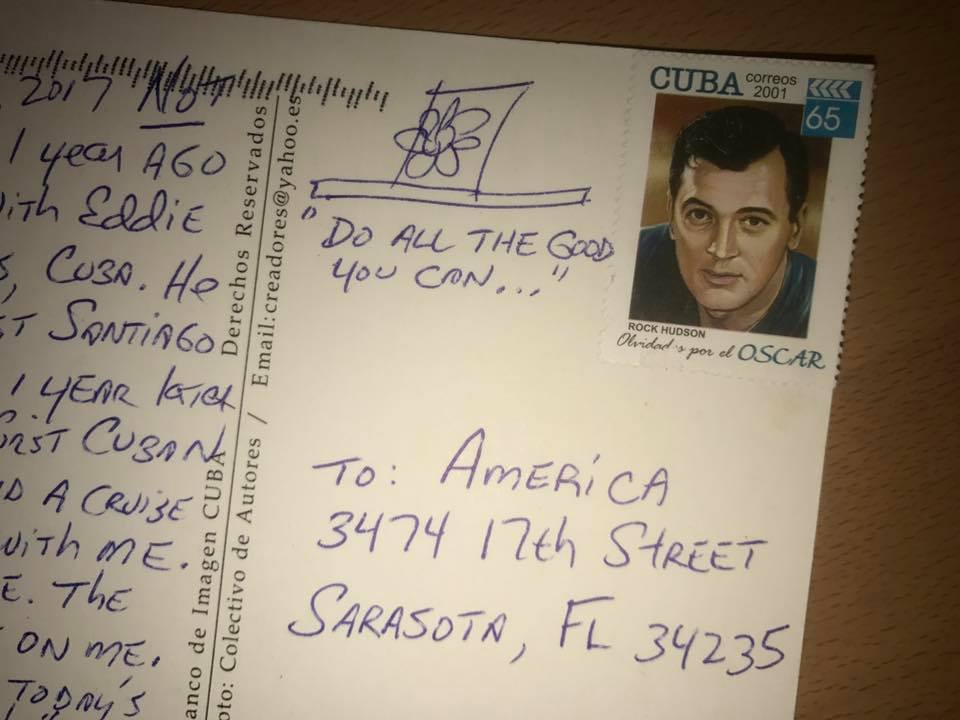 2017 NOT
1 year AGO
with Eddie
, CUBA. He
ST SANTIAGO
1 YEAR later
CUBAN
A CRUISE
with ME.
E. The
ON ME.
TODAY'S
Derechos Reservados
Email:creadores@yahoo.es
anco de Imagen CUBA
oto: Colectivo de Autores /
"DO ALL THE GOOD
YOU CAN..."
CUBA correos
2001
65
ROCK HUDSON
Olvidad s por el OSCAR
TO: AMERICA
3474 17th STREET
SARASOTA, FL 34235